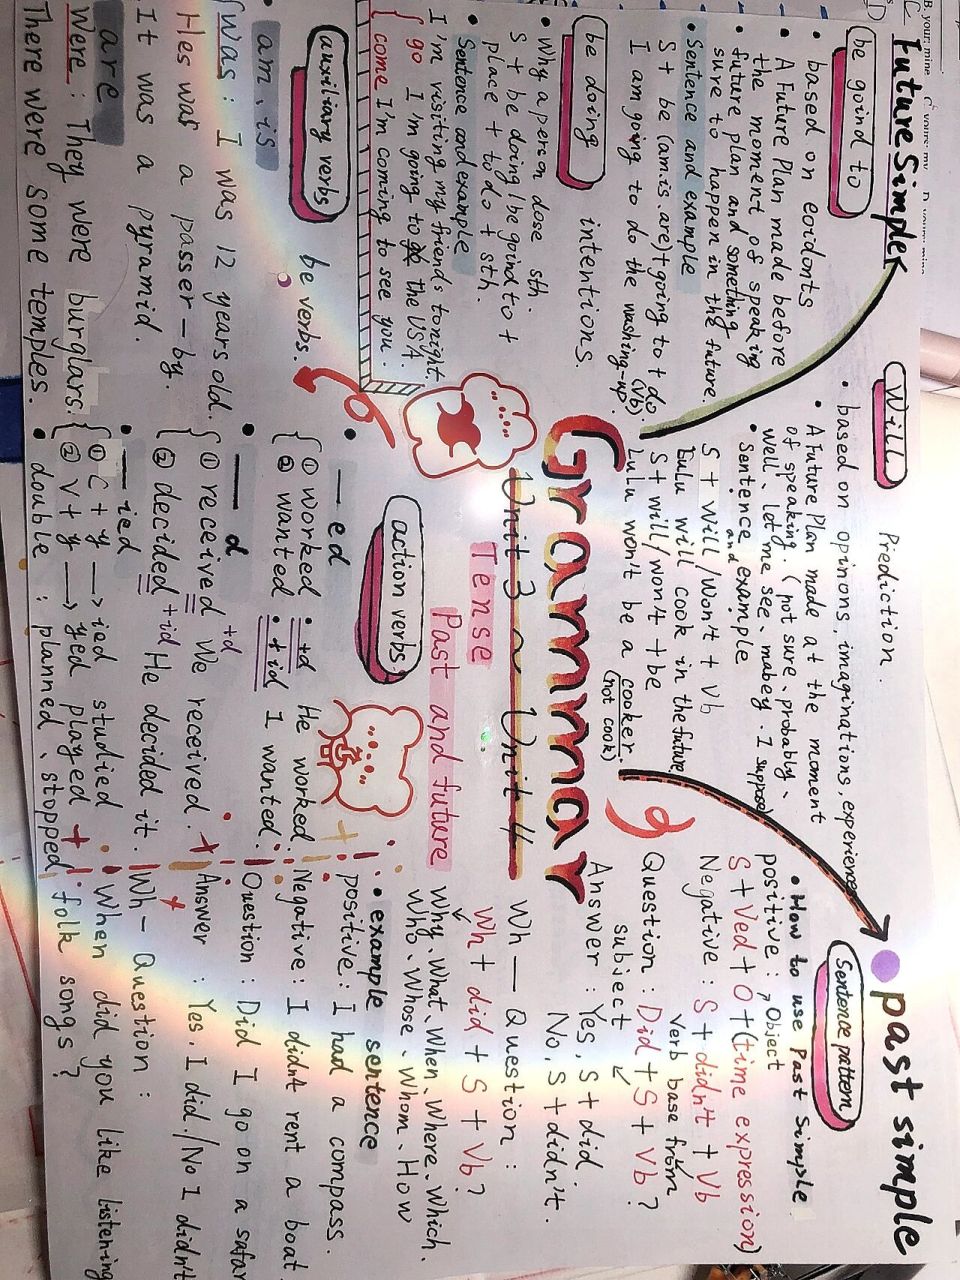 Future Simple
be goind to
• based on eoidonts
• A Future Plan made before
the moment of speaking
• future plan and something
sure to happen in the future.
• Sentence and example
S + be (am is are) + going to + do
(Vb)
I am going to do the washing-up.
be doing
intentions.
• Why a person dose sth.
S + be doing / be goind to +
place + to do + sth.
• Sentence and example
I'm visiting my friends tonight.
go I'm going to the USA.
come I'm coming to see you.
Will
Prediction.
• based on opinons, imaginations, experience
• A future Plan made at the moment
of speaking. (not sure、probably、
well、let me see、mabey. I suppose)
• Sentence and example
S + will / won't + Vb
LuLu will cook in the future
S + will / won't + be
LuLu won't be a cooker
(not cook)
Grammar
Unit 3 ~ Unit 4
Tense
Past and future
past simple
Sentence pattern
• How to use Past Simple
positive : Object
S + Ved + O + (time expression)
Negative : S + didn't + Vb
verb base from
Question : Did + S + Vb ?
subject
Answer : Yes, S + did
No, S + didn't.
Wh — Question :
Wh + did + S + Vb ?
Why、What、When、Where、Which、
Who、Whose、Whom、How
• example sentence
positive : I had a compass.
Negative : I didn't rent a boat
Question : Did I go on a safar
Answer : Yes, I did. / No I didn't
Wh - Question :
When did you like listening
folk songs ?
auxiliary verbs
be verbs.
• am、is
was : I was 12 years old.
Hes was a passer-by.
It was a pyramid.
• are
were : They were burglars.
There were some temples.
action verbs
• — ed
① worked • +d He worked.
② wanted • +id I wanted.
• — d
① received +d We received.
② decided +id He decided it.
• — ied
① C + y → ied studied
② V + y → yed played
• double : planned、stopped